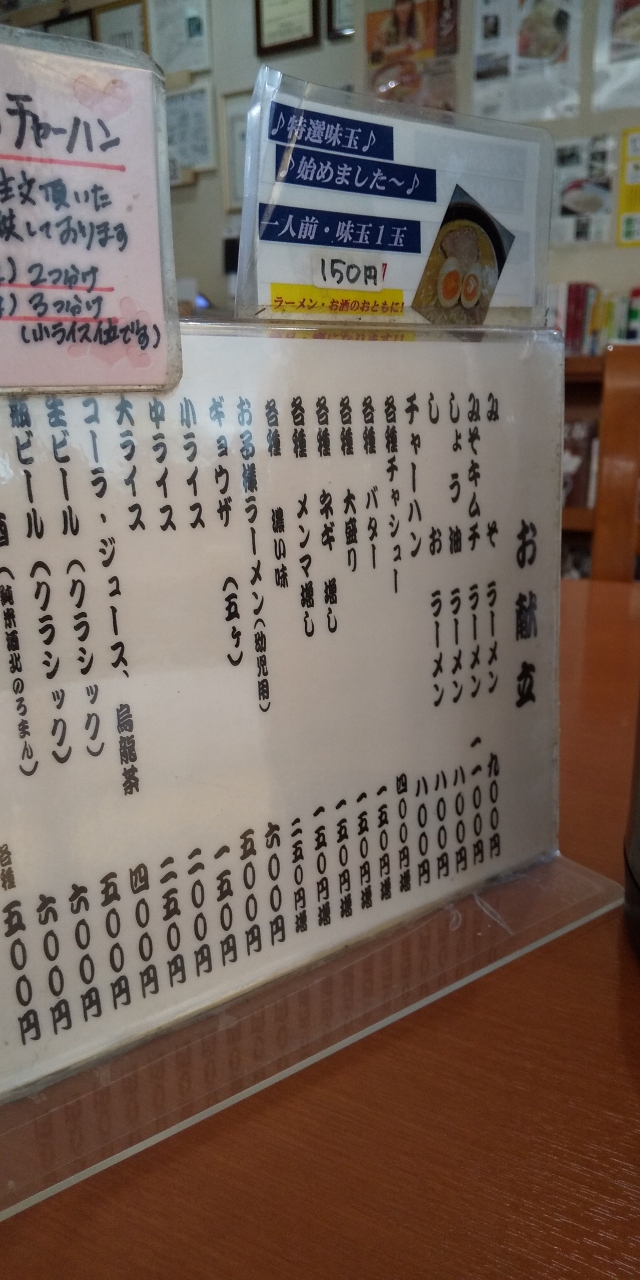 チャーハン
注文頂いた
しております
2つ分け
3つ分け
(小ライス位です)
♪特選味玉♪
♪始めました～♪
一人前・味玉1玉
150円!
ラーメン・お酒のおともに!
お献立
みそラーメン
みそキムチラーメン
しょう油ラーメン
しおラーメン
チャーハン
各種チャシュー
各種バター
各種大盛り
各種ネギ増し
各種メンマ増し
各種濃い味
おこ様ラーメン(幼児用)
ギョウザ(五ヶ)
小ライス
中ライス
大ライス
コーラ・ジュース、烏龍茶
生ビール(クラシック)
瓶ビール(クラシック)
酒(純米酒北のろまん)
九〇〇円
一一〇〇円
八〇〇円
八〇〇円
八〇〇円
四〇〇円増
一五〇円増
一五〇円増
一五〇円増
一五〇円増
二五〇円増
六〇〇円
五〇〇円
一五〇円
二〇〇円
二五〇円
四〇〇円
五〇〇円
六〇〇円
六〇〇円
各種五〇〇円